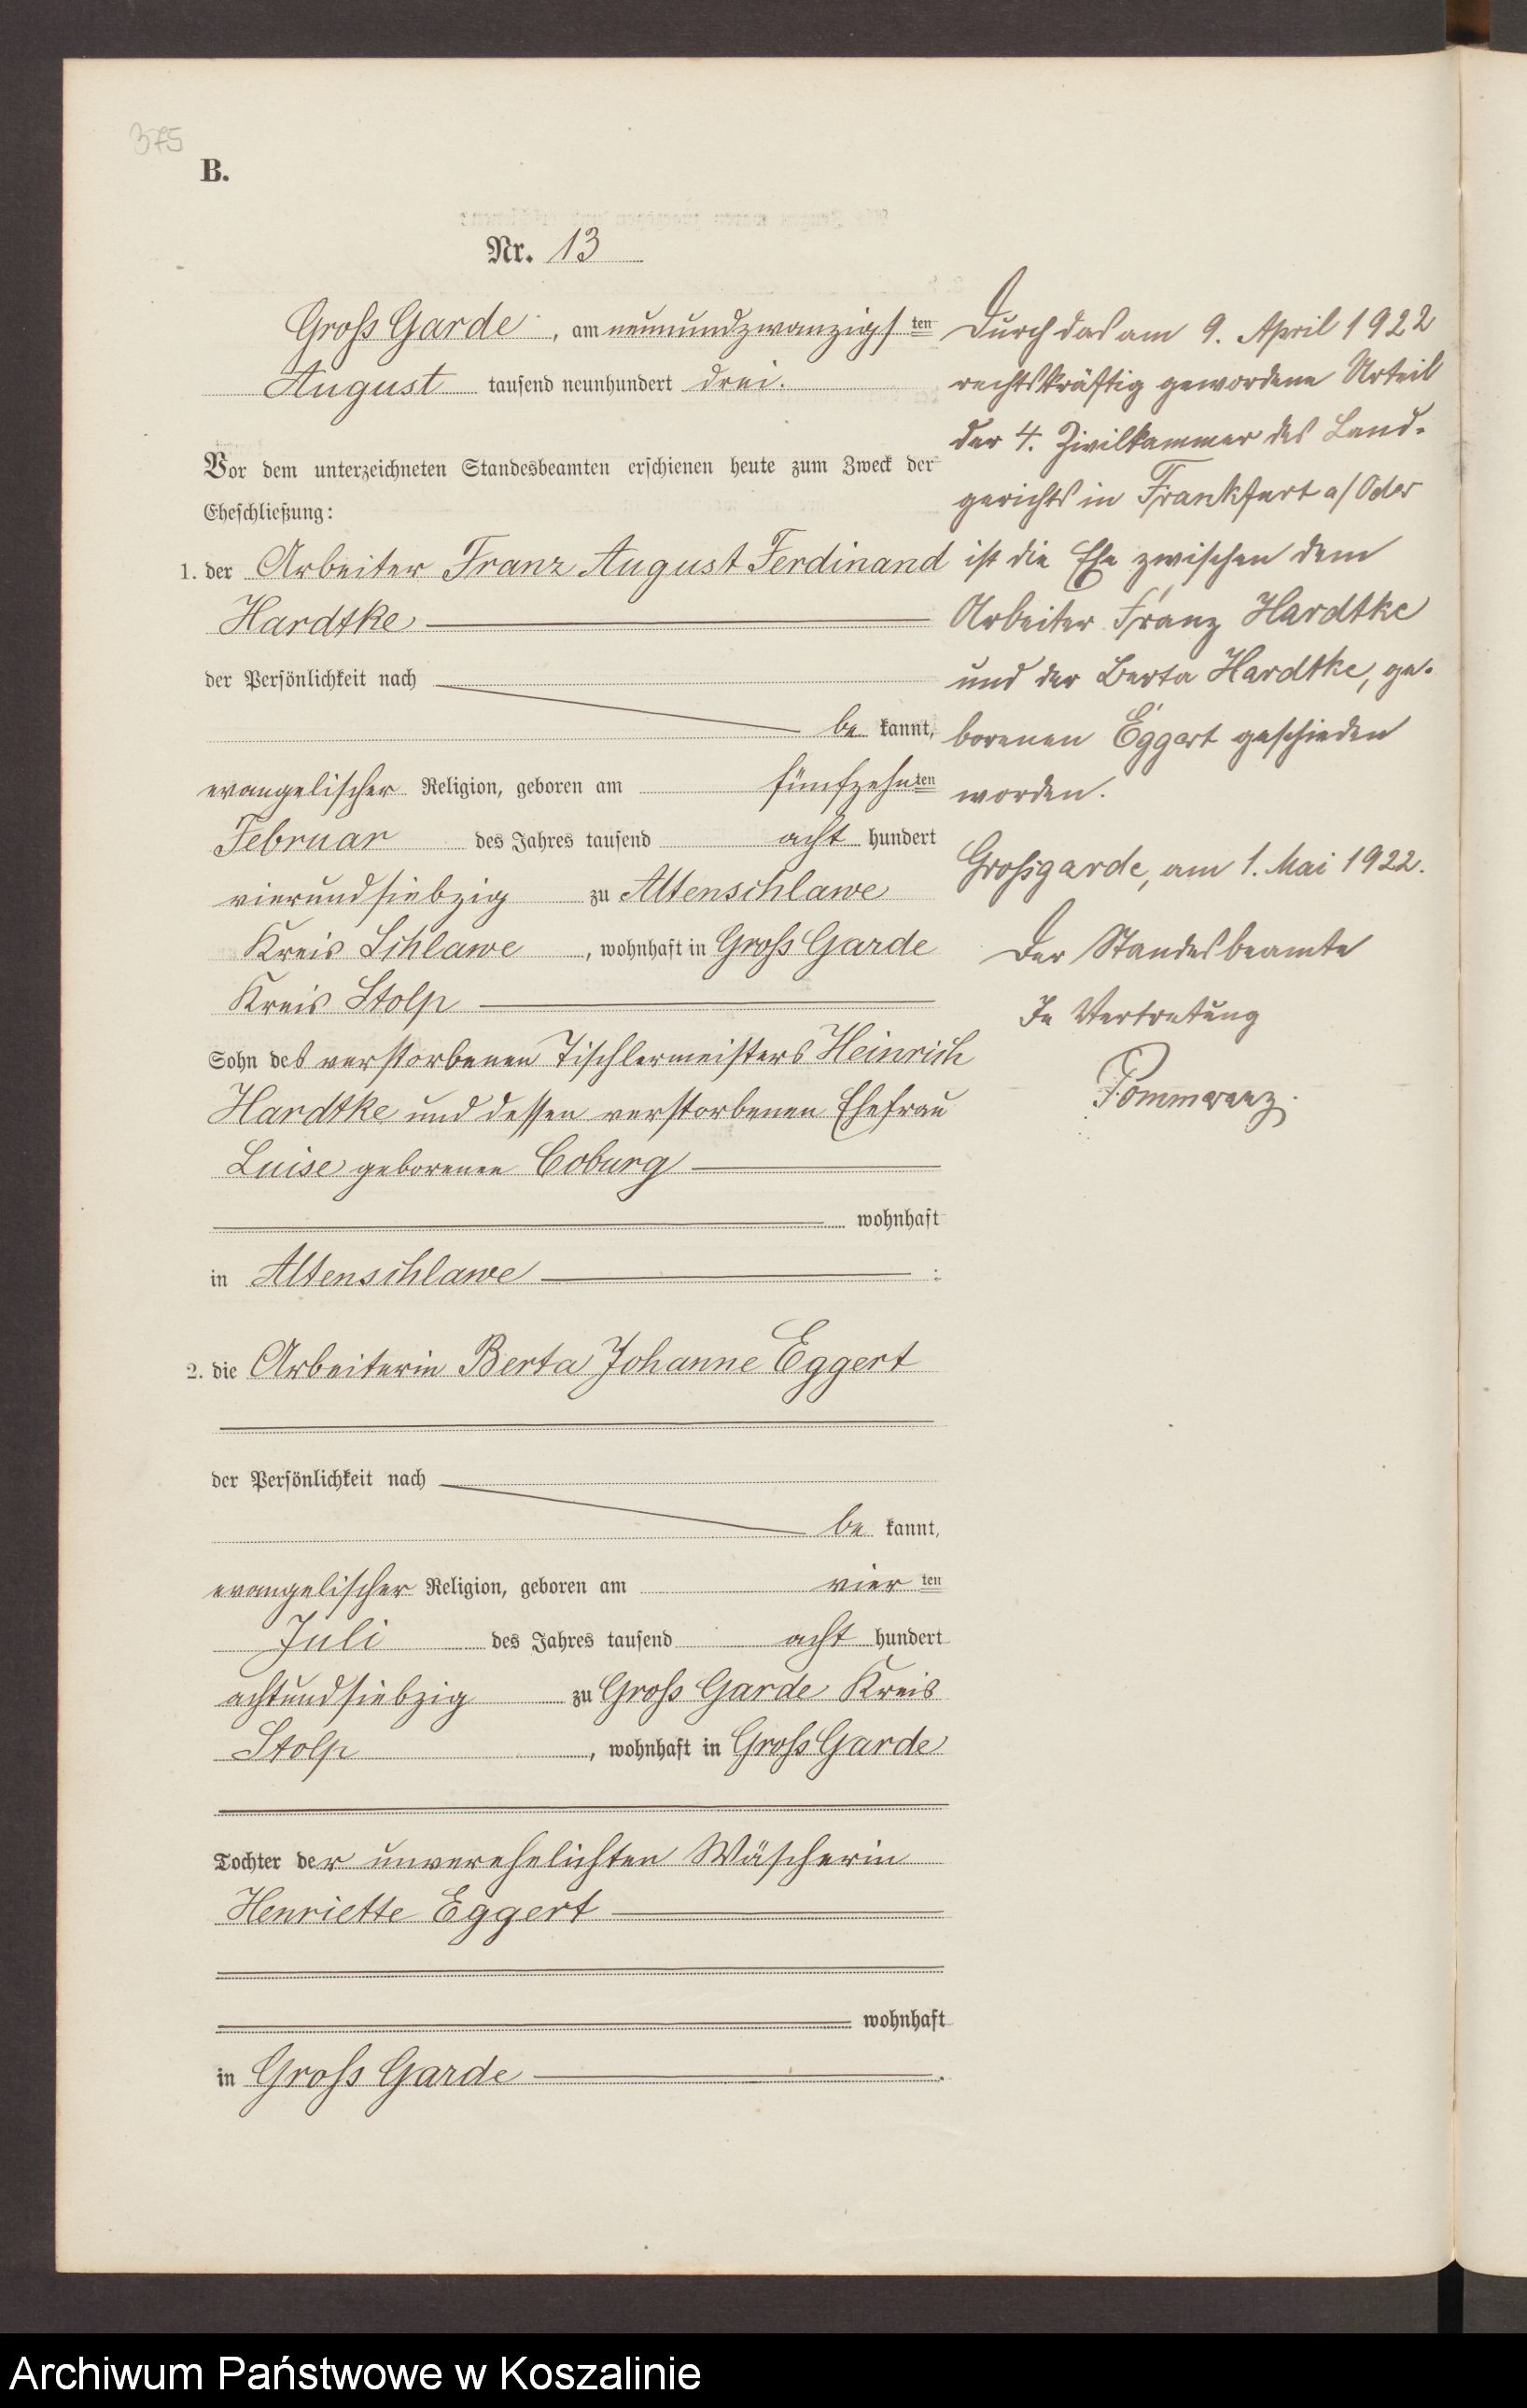 375
B.
Nr. 13
Groß Garde, am neunundzwanzigsten
August tausend neunhundert drei.
Vor dem unterzeichneten Standesbeamten erschienen heute zum Zweck der
Eheschließung:
1. der Arbeiter Franz August Ferdinand
Hardtke
der Persönlichkeit nach
be kannt,
evangelischer Religion, geboren am fünfzehnten
Februar des Jahres tausend acht hundert
vierundsiebzig zu Altenschlawe
Kreis Schlawe, wohnhaft in Groß Garde
Kreis Stolp
Sohn des verstorbenen Tischlermeisters Heinrich
Hardtke und dessen verstorbenen Ehefrau
Luise geborenen Coburg
wohnhaft
in Altenschlawe :
2. die Arbeiterin Berta Johanne Eggert
der Persönlichkeit nach
be kannt,
evangelischer Religion, geboren am vier ten
Juli des Jahres tausend acht hundert
achtundsiebzig zu Groß Garde Kreis
Stolp, wohnhaft in Groß Garde
Tochter der unverehelichten Wäscherin
Henriette Eggert
wohnhaft
in Groß Garde.
Durch das am 9. April 1922
rechtskräftig gewordene Urteil
der 4. Zivilkammer des Land-
gerichts in Frankfurt a/Oder
ist die Ehe zwischen dem
Arbeiter Franz Hardtke
und der Berta Hardtke, ge-
borenen Eggert geschieden
worden.
Großgarde, am 1. Mai 1922.
Der Standesbeamte
In Vertretung
Pommerenz.
Archiwum Państwowe w Koszalinie